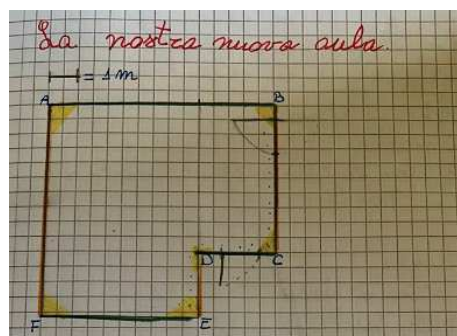 La nostra nuova aula.
= 1 m
A B
D C
F E